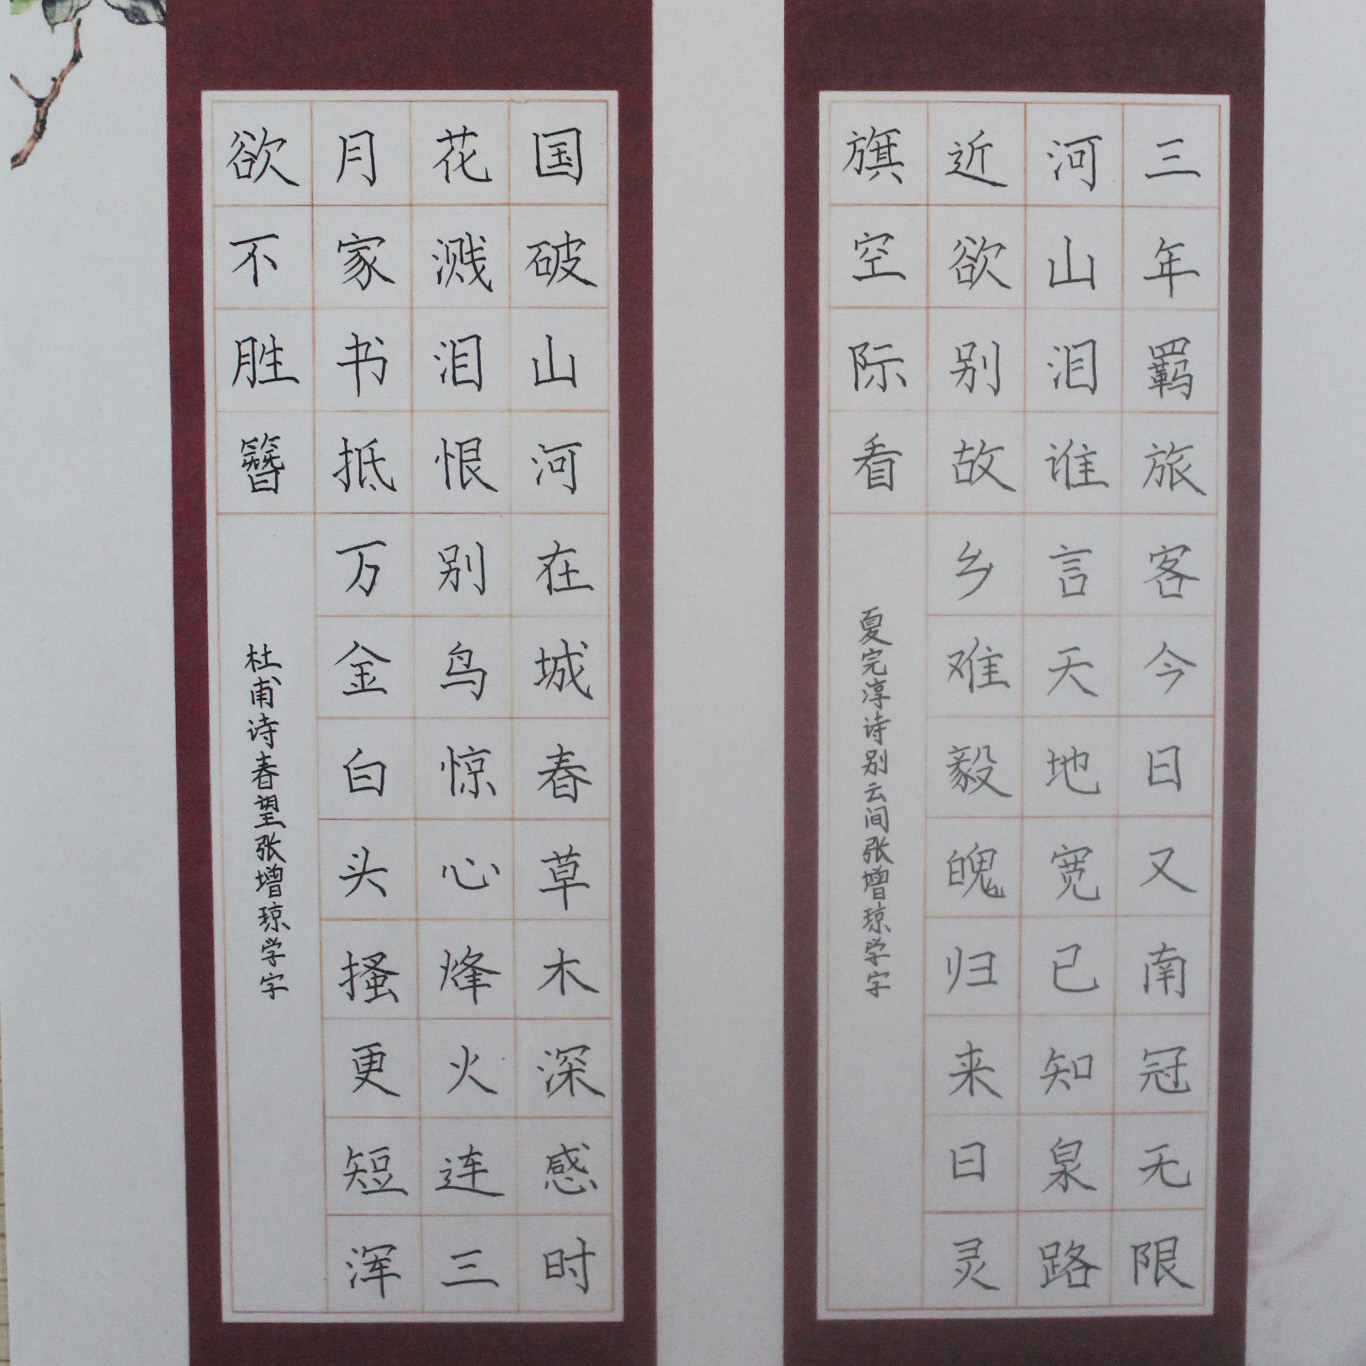 三年羁旅客今日又南冠无限
河山泪谁言天地宽已知泉路
近欲别故乡难毅魄归来日灵
旗空际看
夏完淳诗别云间张增琼学字
国破山河在城春草木深感时
花溅泪恨别鸟惊心烽火连三
月家书抵万金白头搔更短浑
欲不胜簪
杜甫诗春望张增琼学字